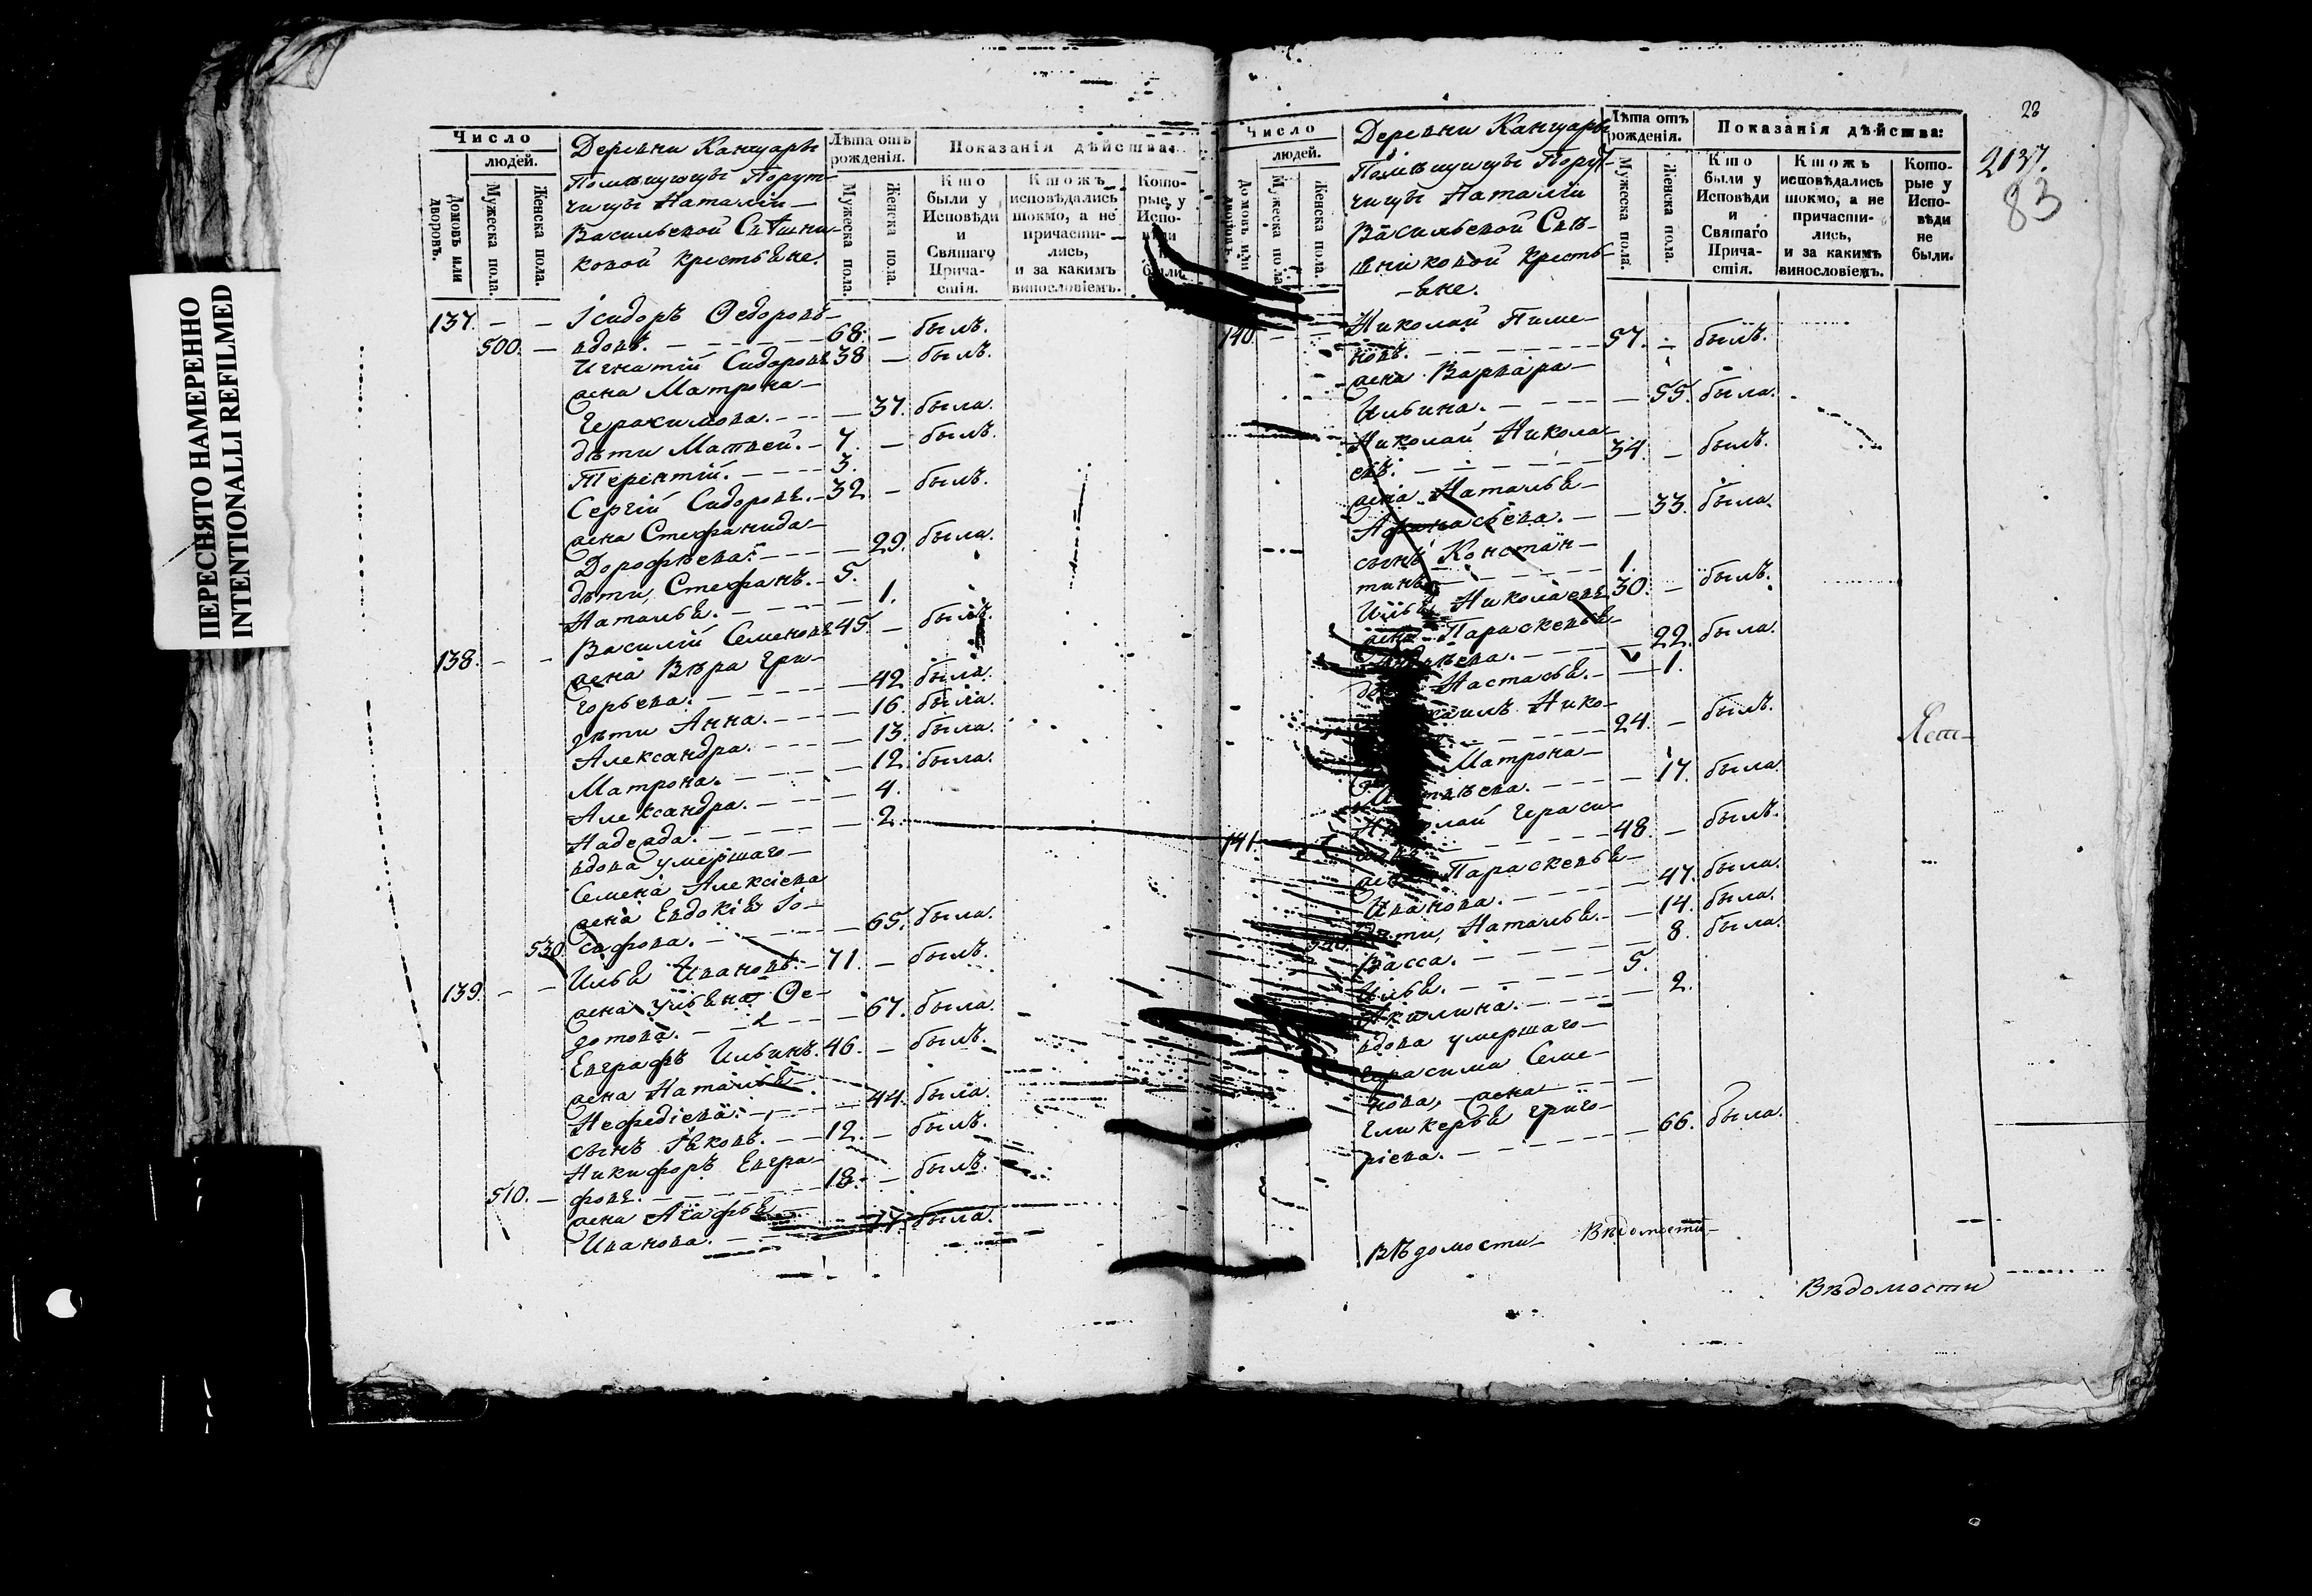 ПЕРЕСНЯТО НАМЕРЕННО
INTENTIONALLI REFILMED
Число
людей.
Домовъ или дворовъ.
Мужеска пола.
Женска пола.
Деревни Канчуаръ
Помѣщицы Порут-
чицы Наталіи
Васильевой Свѣшни-
ковой крестьяне.
Лѣта отъ рожденія.
Мужеска пола.
Женска пола.
Показанія дѣйства:
Кто были у Исповѣди и Святаго Прича- стія.
Ктожъ исповѣдались токмо, а не причасти- лись, и за какимъ винословіемъ.
Кото- рые у Испо- вѣди не были.
137. — — Ісидоръ Ѳедоровъ
500. — вдовъ. 68. — былъ.
Игнатій Сидоровъ 38 — былъ.
жена Матрона
Герасимова. — 37. была.
дѣти Матвей. 7. — былъ.
Терентій. 3.
Сергій Сидоровъ. 32 — былъ.
жена Стефанида
Дорофѣева. — 29. была.
дѣти, Стефанъ. 5.
Наталья. — 1.
138. — — Василій Семеновъ 45. — былъ.
жена Вѣра Гри-
горьева. — 42 была.
дѣти Анна. — 16. была.
Александра. — 13. была.
Матрона. — 12. была.
Александра. — 4.
Надежда. — 2.
вдова умершаго
Семена Алексіева
жена Евдокія Іо-
530 сафова. — 65. была.
139. — — Илья Ивановъ. 71. — былъ.
жена Ульяна Ѳе-
дотова. — 67. была.
Евграфъ Ильинъ. 46. — былъ.
жена Наталья
Нефедіева. — 44. была.
сынъ Яковъ. 12. — былъ.
Никифоръ Евгра-
510. — фовъ. 18. — былъ.
жена Агафья
Иванова. — 17. была.
22
2137.
83
Число
людей.
Домовъ или дворовъ.
Мужеска пола.
Женска пола.
Деревни Канчуаръ
Помѣщицы Порут-
чицы Наталіи
Васильевой Свѣ-
шниковой кресть-
яне.
Лѣта отъ рожденія.
Мужеска пола.
Женска пола.
Показанія дѣйства:
Кто были у Исповѣди и Святаго Прича- стія.
Ктожъ исповѣдались токмо, а не причасти- лись, и за какимъ винословіемъ.
Кото- рые у Испо- вѣди не были.
140. — — Николай Пиме-
новъ. 57. — былъ.
жена Варвара
Ильина. — 55. была.
Николай Никола-
евъ. 34. — былъ.
жена Наталья
Афанасьева. — 33. была.
сынъ Констан-
тинъ 1.
Илья Николаевъ 30. — былъ.
жена Параскевья
— 22. была.
Настасья. — 1.
Нико-
24. — былъ.
Матрона
— 17. была.
141 Николай Гераси-
мовъ. 48. — былъ.
жена Параскевья
Иванова. — 47. была.
дѣти, Наталья. — 14. была.
Васса. — 8. была.
Илья. 5.
Акилина. — 2.
вдова умершаго
Герасима Семе-
нова, жена
Гликерья Григо-
ріева. — 66. была.
Вѣдомости
Вѣдомости
Вѣдомости